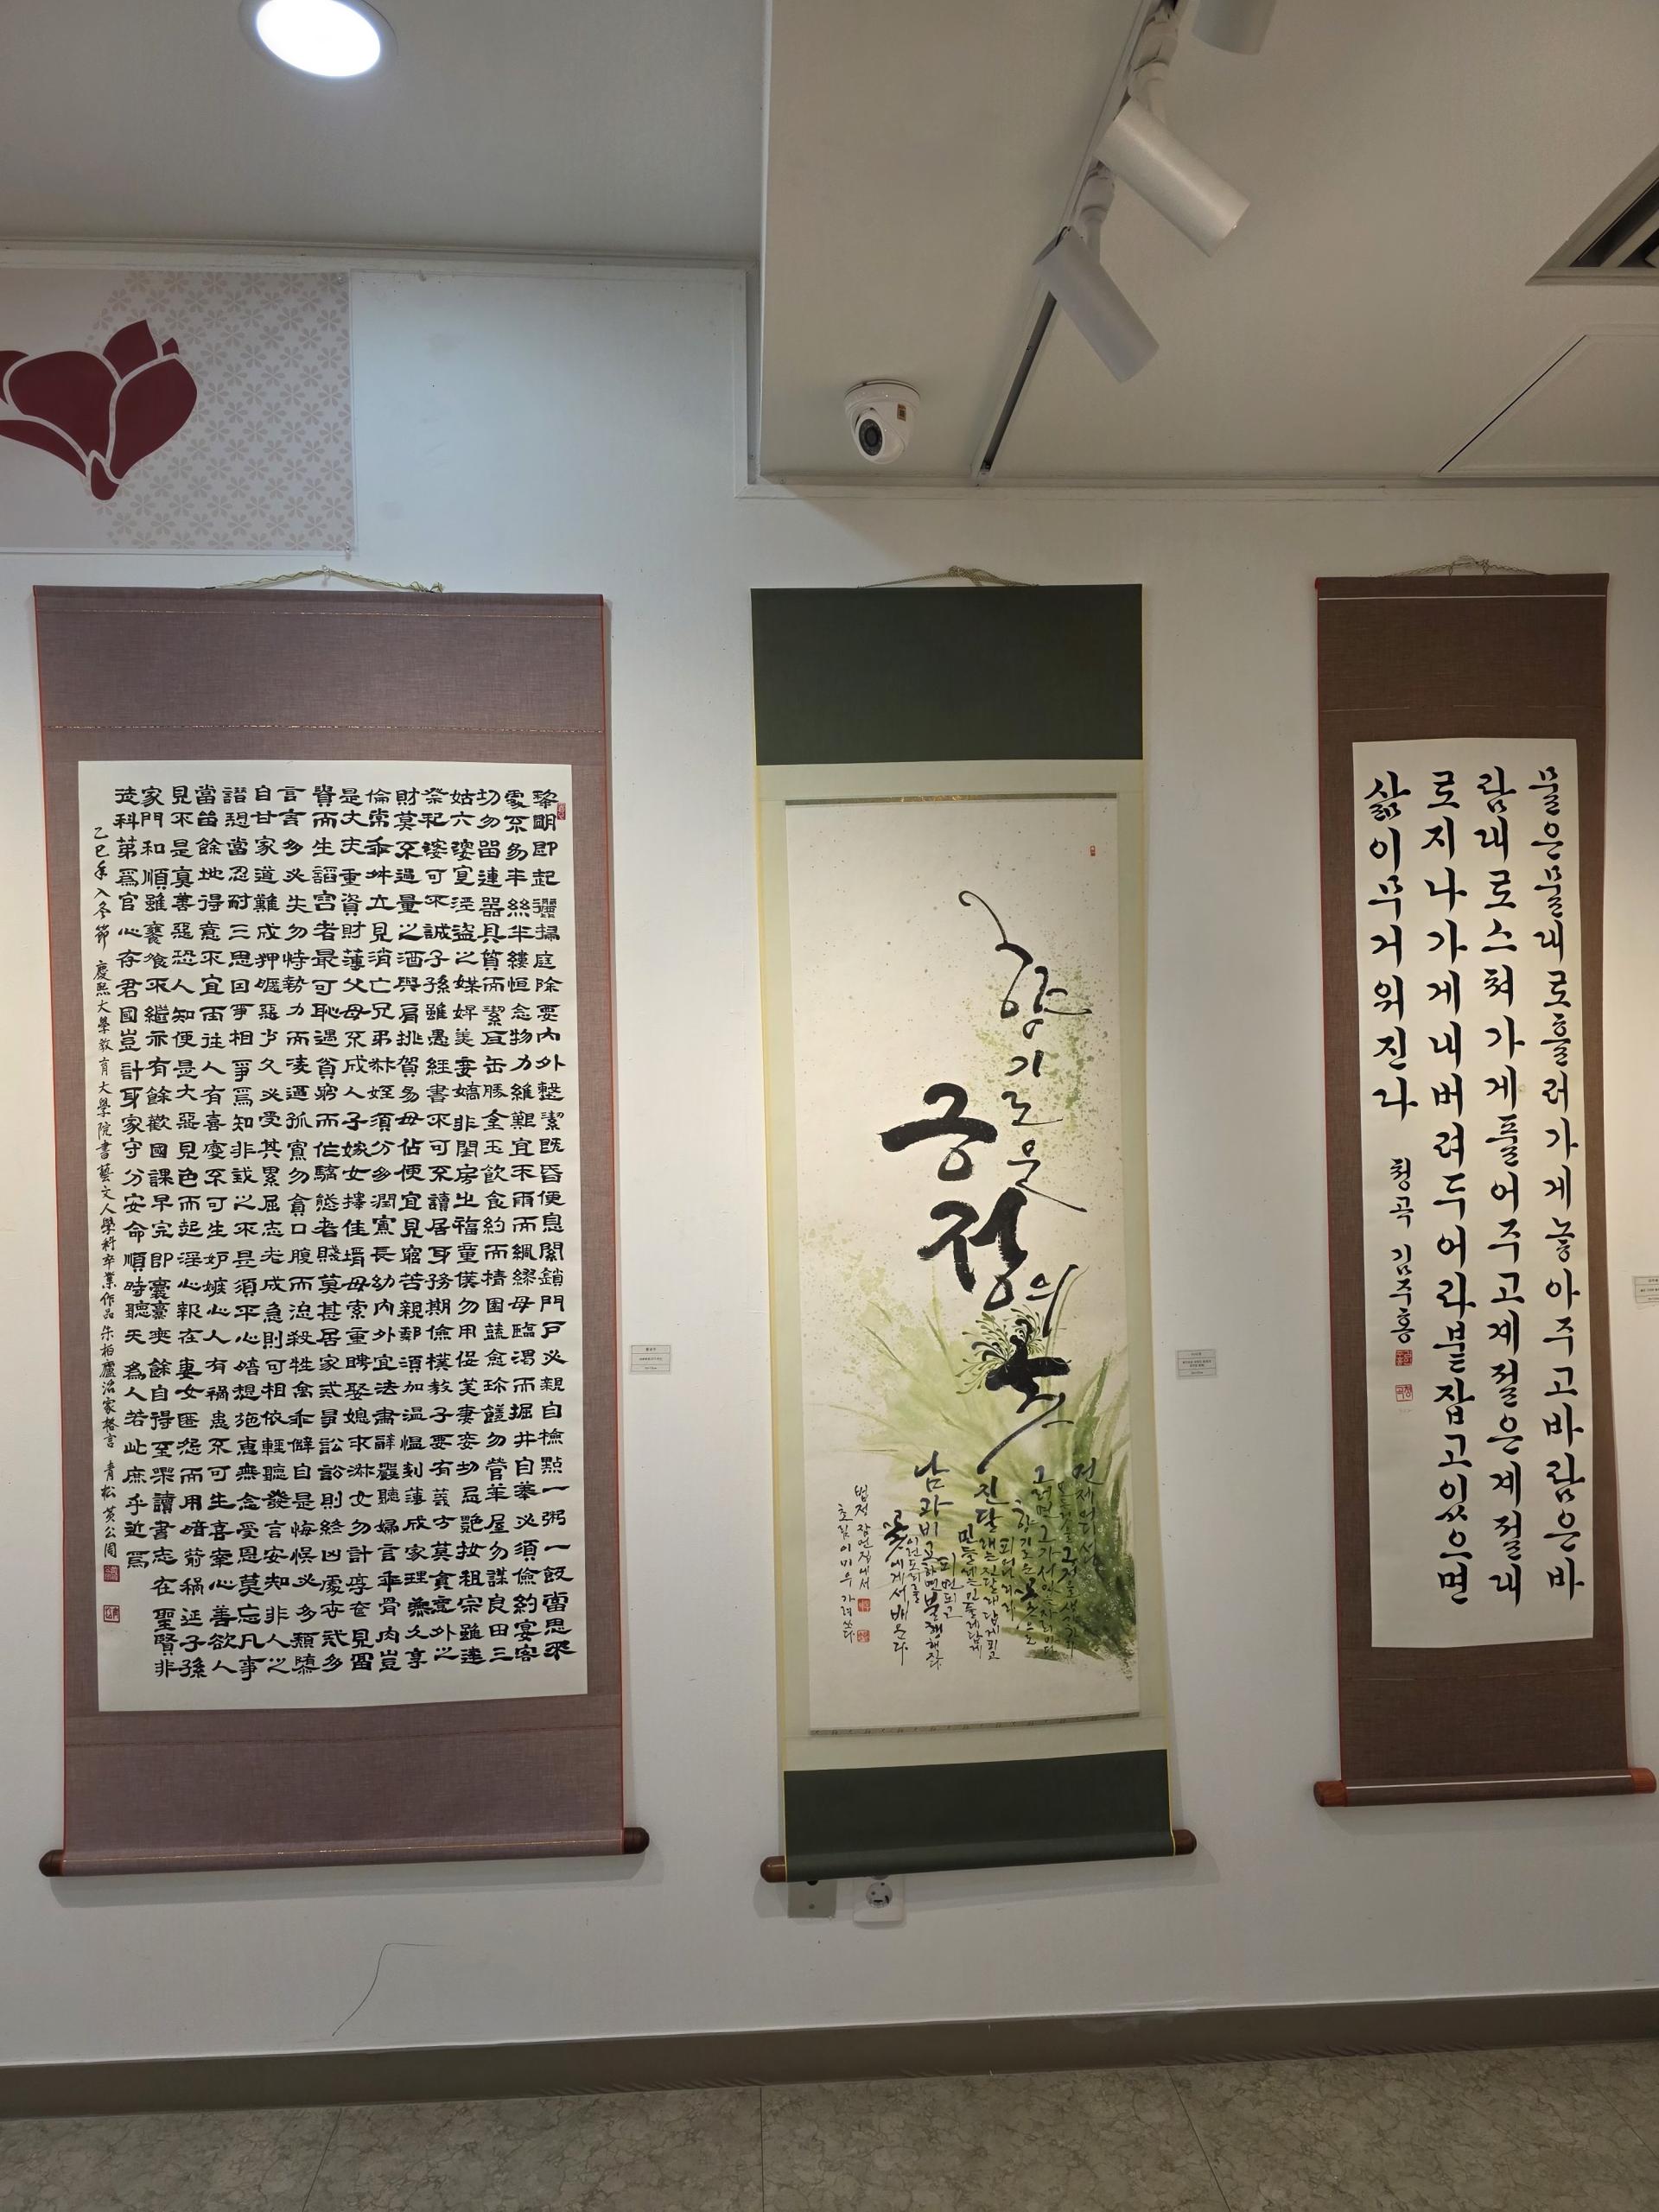 黎明即起灑掃庭除要內外整潔既昏便息關鎖門戶必親自檢點一粥一飯當思來
處不易半絲半縷恒念物力維艱宜未雨而綢繆毋臨渴而掘井自奉必須儉約宴客
切勿留連器具質而潔瓦缶勝金玉飲食約而精園蔬愈珍饈勿營華屋勿謀良田三
姑六婆實淫盜之媒婢美妾嬌非閨房之福童僕勿用俊美妻妾切忌艷妝祖宗雖遠
祭祀可不誠子孫雖愚經書不可不讀居身務期儉樸教子要有義方莫貪意外之
財莫過量之酒與肩挑貿易毋佔便宜見窮苦親鄰須加溫慍刻薄成家理無久享
倫常乖舛立見消亡兄弟叔姪須分多潤寡長幼內外宜法肅辭嚴聽婦言乖骨肉豈
是丈夫重資財薄父母不成人子嫁女擇佳壻毋索重聘娶媳求淑女勿計厚奩見富
貴而生諂容者最可恥遇貧窮而作驕態者賤莫甚居家戒爭訟訟則終凶處世戒多
言言多必失勿恃勢力而凌逼孤寡勿貪口腹而恣殺牲禽乖僻自是悔悞必多頹惰
自甘家道難成狎暱惡少久必受其累屈志老成急則可相依輕聽發言安知非人之
譖愬當忍耐三思因事相爭焉知非我之不是須平心暗想施惠無念受恩莫忘凡事
當留餘地得意不宜再往人有喜慶不可生妒嫉心人有禍患不可生喜幸心善欲人
見不是眞善惡恐人知便是大惡見色而起淫心報在妻女匿怨而用暗箭禍延子孫
家門和順雖饔飧不繼亦有餘歡國課早完即囊橐無餘自得至樂讀書志在聖賢非
徒科第爲官心存君國豈計身家守分安命順時聽天爲人若此庶乎近焉
乙巳年入冬節 慶熙大學敎育大學院書藝文人學科卒業作品 朱柏廬治家格言 靑松 黃公周
향기로운
긍정의
꽃
언제 어디서
그러면 그가 서있는 자리마다
향기로운 꽃으로
피어나리라
진달래는 진달래답게 피고
민들레는 민들레답게
피면 되고
남과 비교하면 불행해짐
이런 도리를
꽃에게서 배운다
법정 잠언집에서
초림 이미우 가려 쓰다
물은물대로흘러가게놓아주고바람은바
람대로스쳐가게풀어주고계절은계절대
로지나가게내버려두어라붙잡고있으면
삶이무거워진다 청곡 김주홍